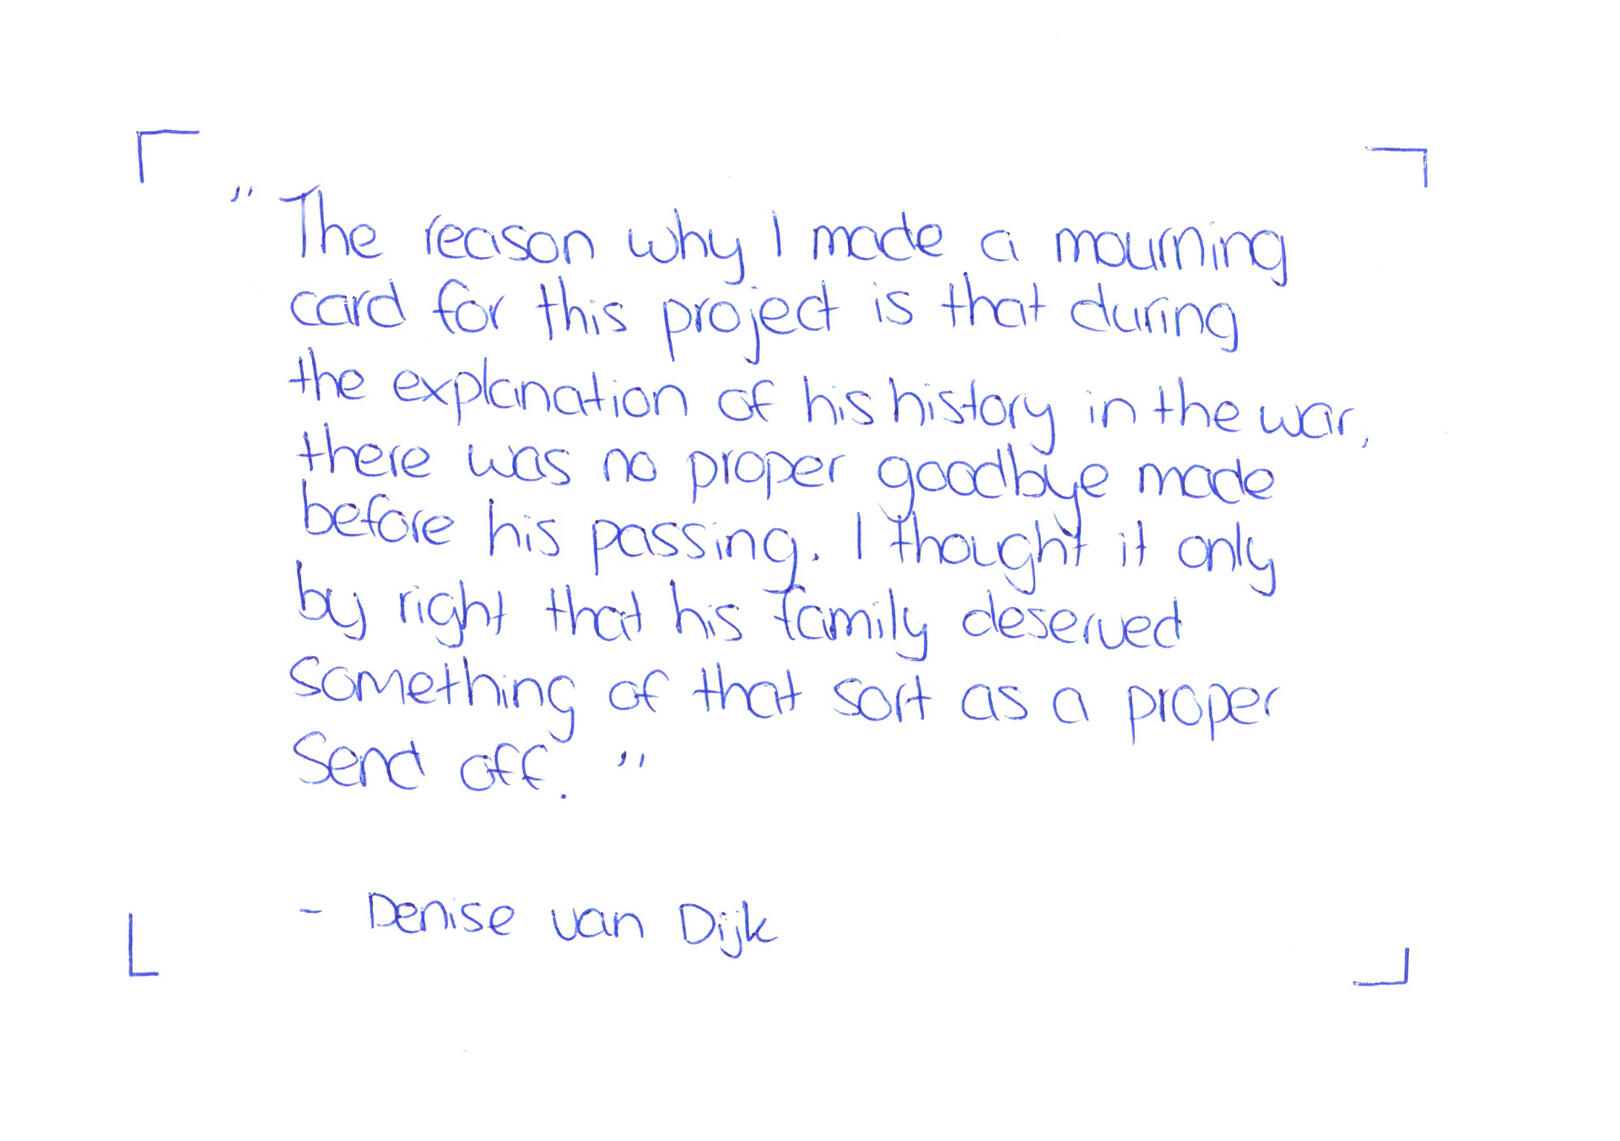 " The reason why I made a mourning
card for this project is that during
the explanation of his history in the war,
there was no proper goodbye made
before his passing. I thought it only
by right that his family deserved
something of that sort as a proper
send off. "
- Denise van Dijk